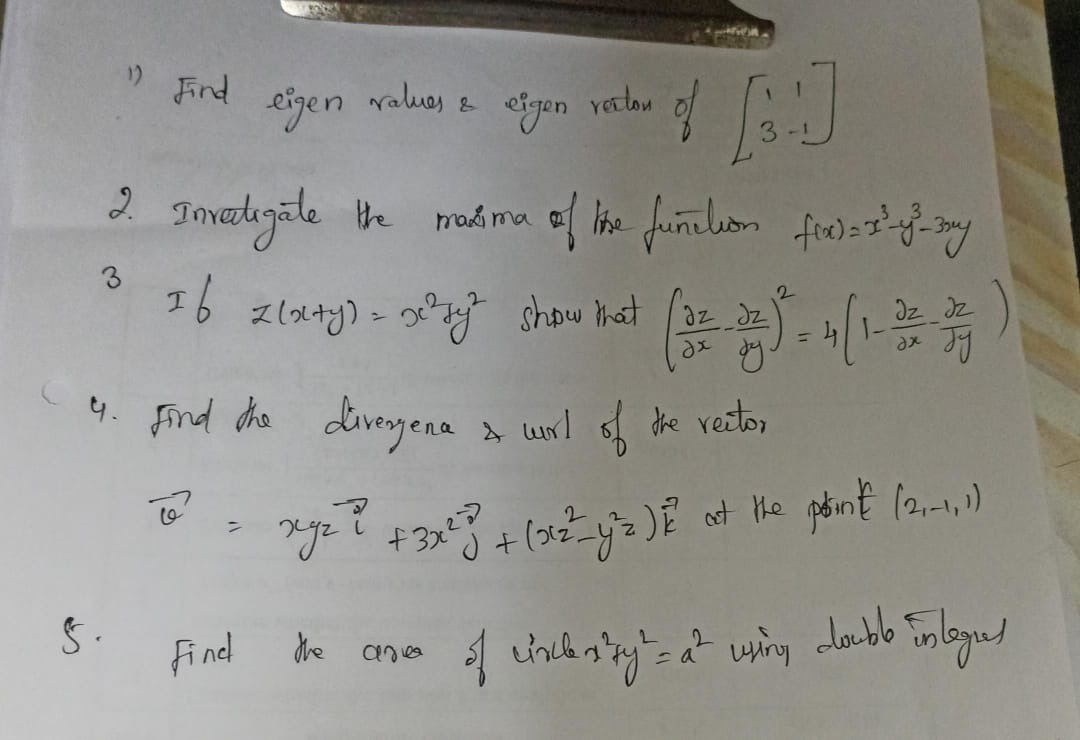 1) Find eigen values & eigen vectors of [1 1
3 -1]
2. Investigate the maxima of the function f(x) = x³-y³-3xy
3 If z(x+y) = x²+y² show that (∂z/∂x - ∂z/∂y)² = 4(1 - ∂z/∂x - ∂z/∂y)
4. Find the divergence & curl of the vector
= xyz i⃗ + 3x²y j⃗ + (xz²-y²z) k⃗ at the point (2,-1,1)
5. Find the area of circle x²+y² = a² using double integral